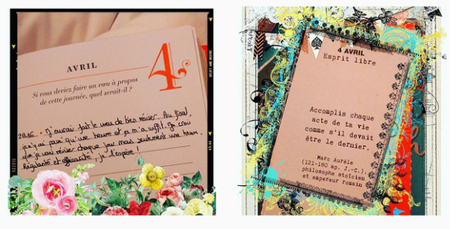 AVRIL
4
Si vous deviez faire un vœu à propos
de cette journée, quel serait-il ?
J'aurai fait le vœu de bien réviser. Au final,
j'ai pas qu'une heure et m'a suffit. Je crois
que je vais réviser chaque jour mais seulement une heure.
Régularité et efficacité, je l'espère !
4 AVRIL
Esprit libre
Accomplis chaque
acte de ta vie
comme s'il devait
être le dernier.
Marc Aurèle
(121-180 ap. J.-C.)
philosophe stoïcien
et empereur romain